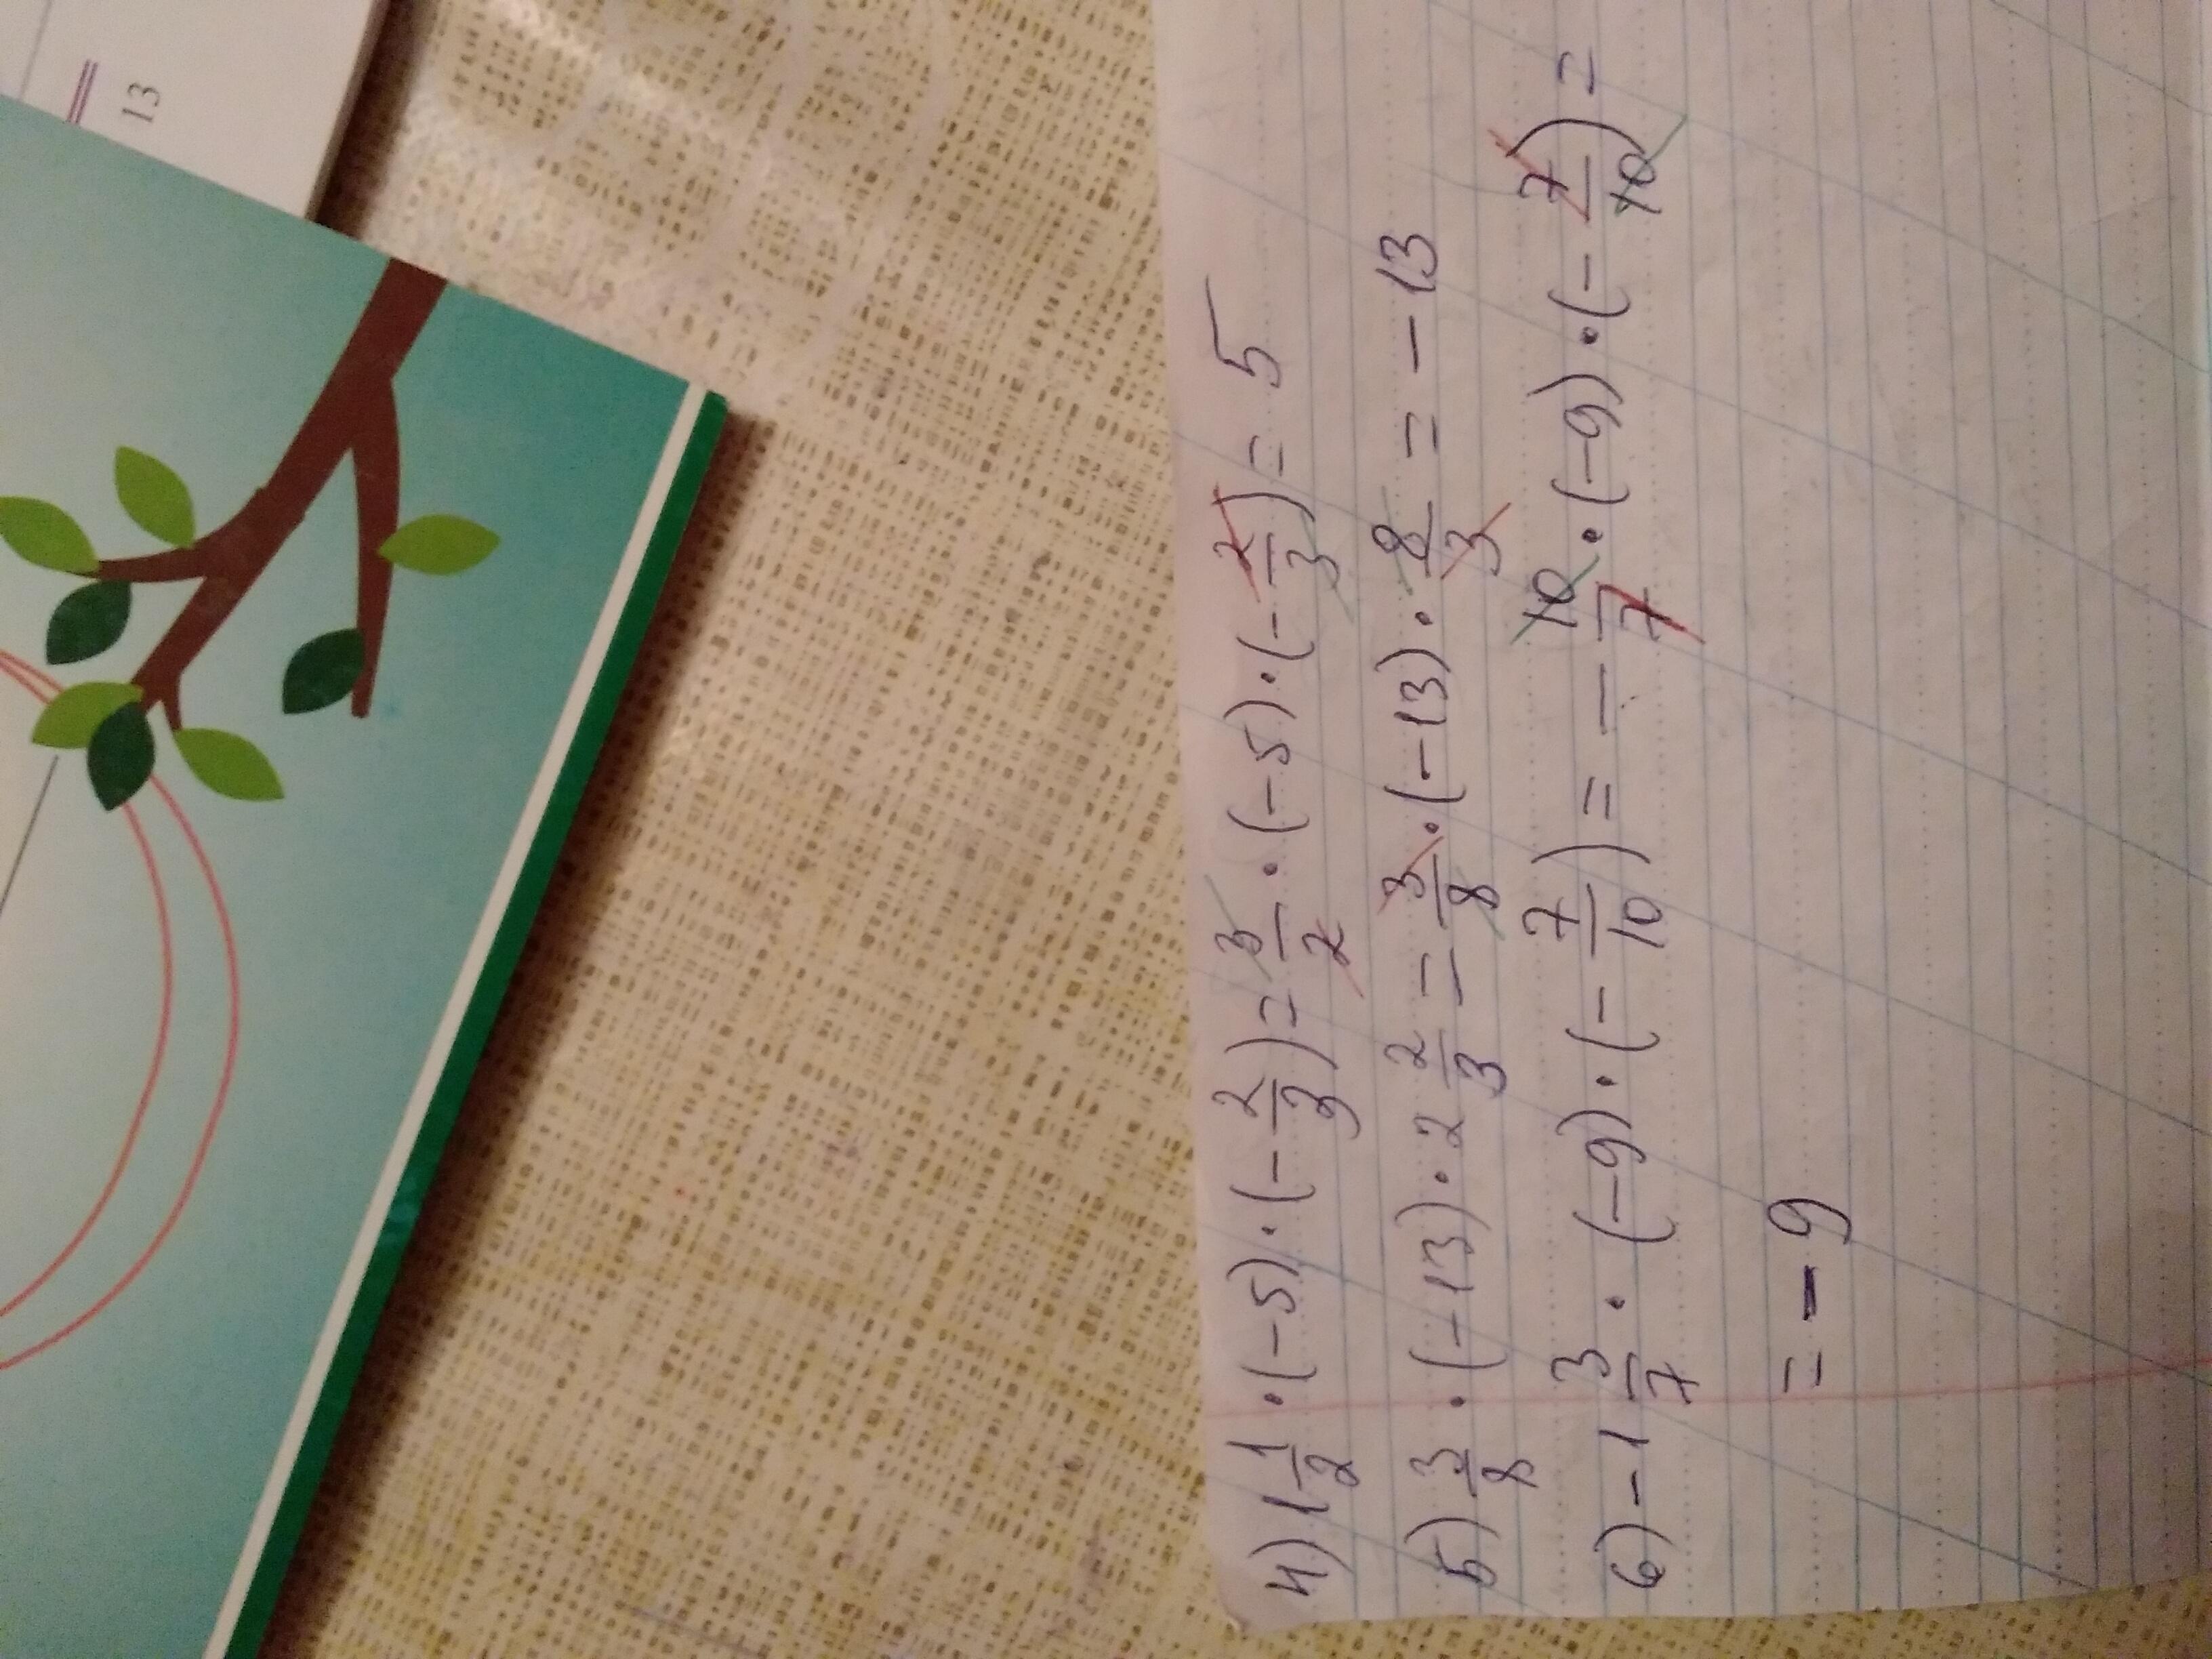 13
4) 1 1/2 · (-5) · (- 2/3) = 3/2 · (-5) · (- 2/3) = 5
5) 3/8 · (-13) · 2 2/3 = 3/8 · (-13) · 8/3 = - 13
6) -1 3/7 · (-9) · (- 7/10) = - 10/7 · (-9) · (- 7/10) =
= - 9